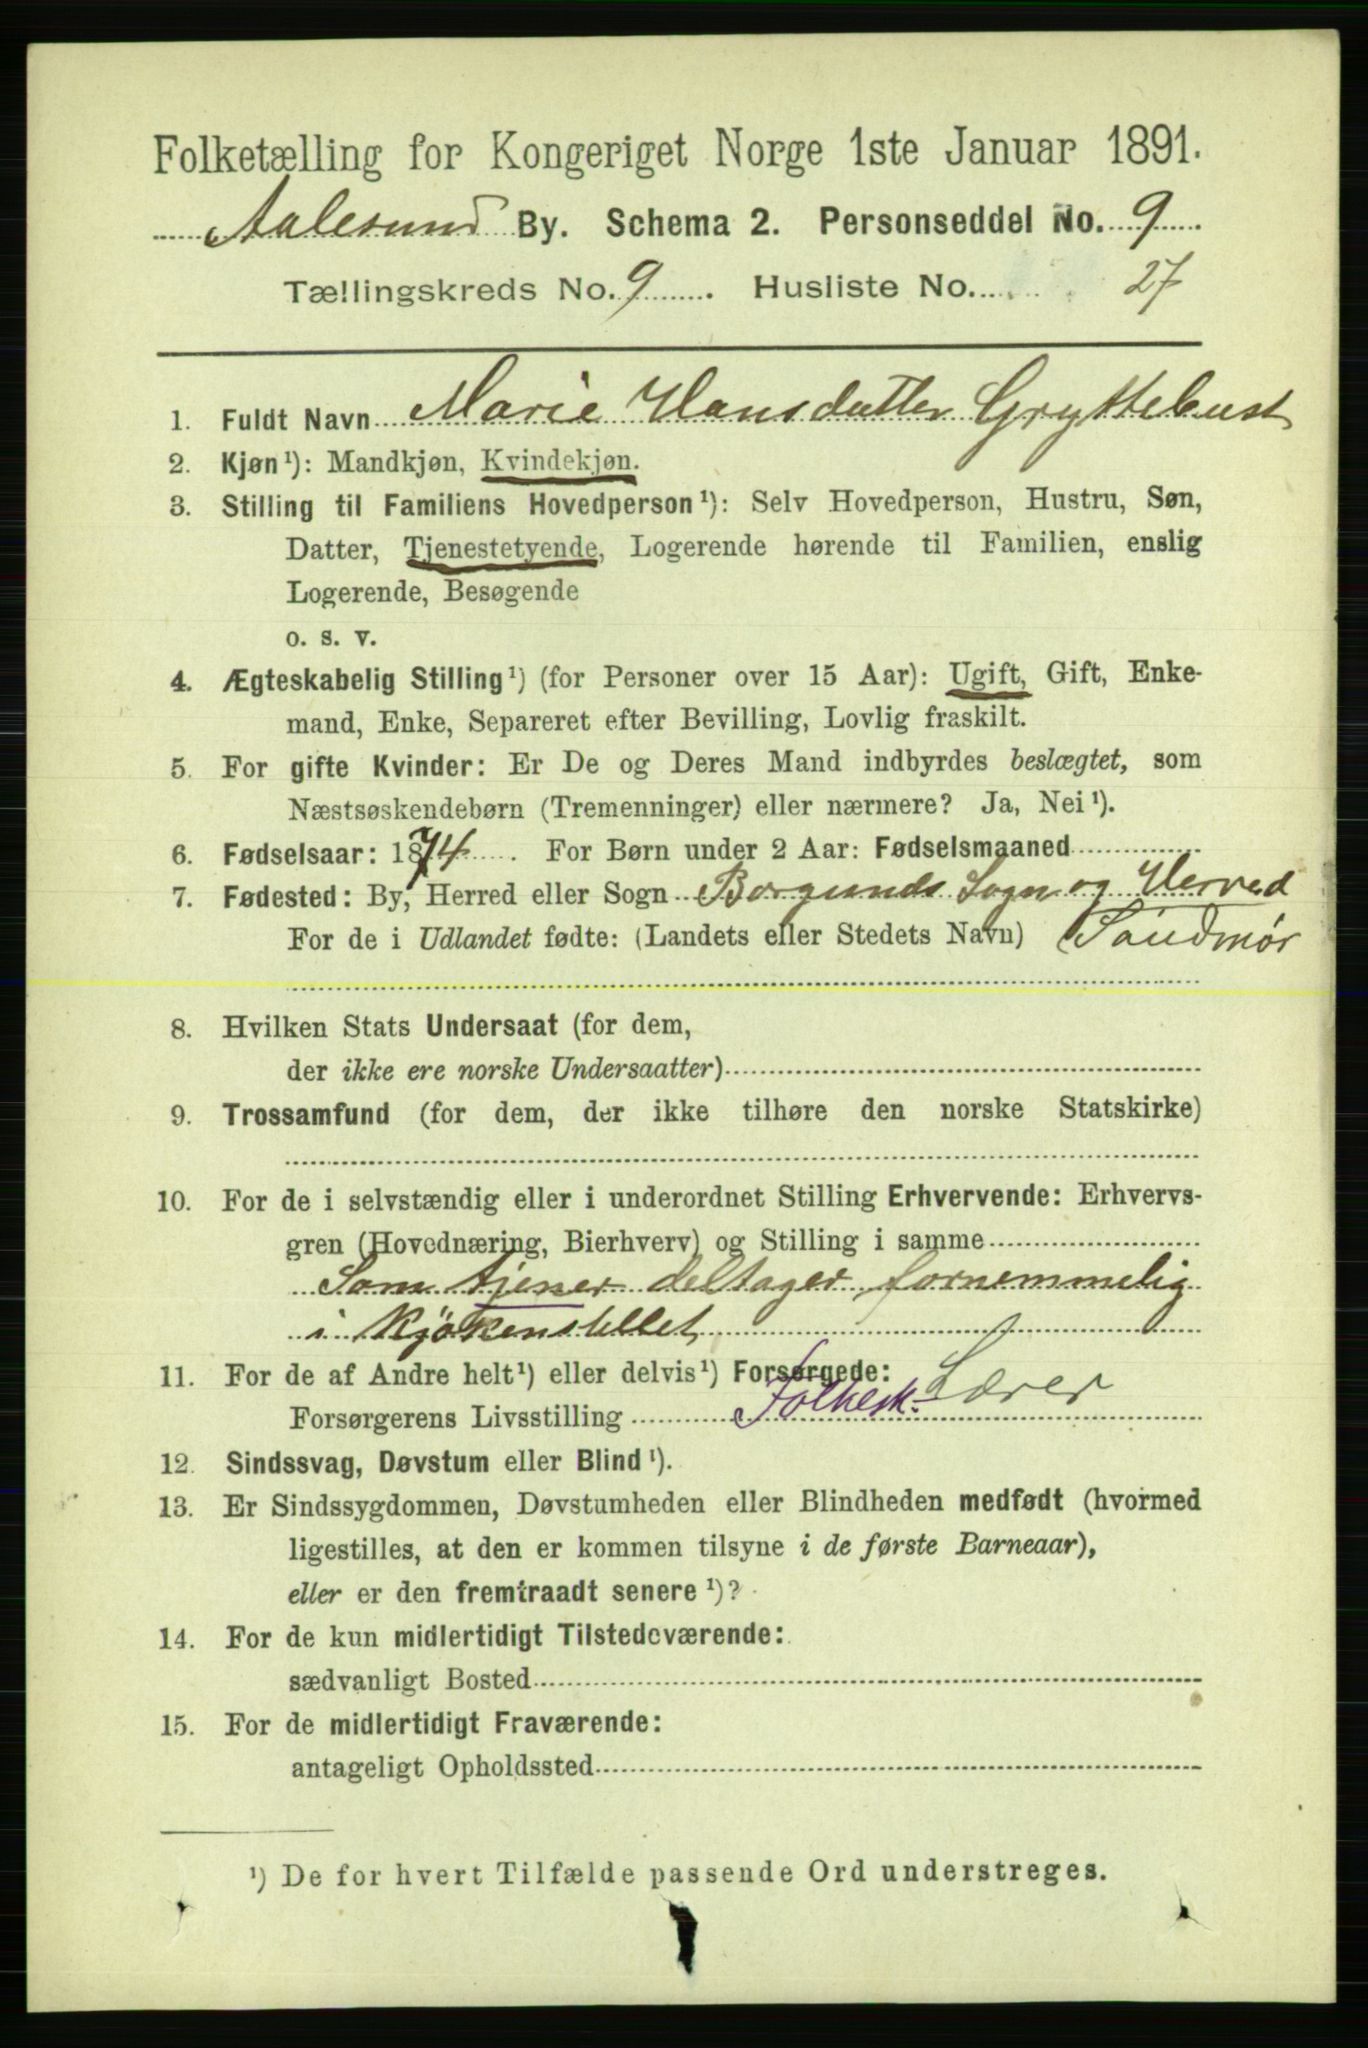 Folketælling for Kongeriget Norge 1ste Januar 1891.
Aalesund By. Schema 2. Personseddel No. 9
Tællingskreds No. 9 Husliste No. 27
1. Fuldt Navn Marie Hansdatter Gryttebust
2. Kjøn¹): Mandkjøn, Kvindekjøn.
3. Stilling til Familiens Hovedperson¹): Selv Hovedperson, Hustru, Søn,
Datter, Tjenestetyende, Logerende hørende til Familien, enslig
Logerende, Besøgende
o. s. v.
4. Ægteskabelig Stilling¹) (for Personer over 15 Aar): Ugift, Gift, Enke-
mand, Enke, Separeret efter Bevilling, Lovlig fraskilt.
5. For gifte Kvinder: Er De og Deres Mand indbyrdes beslægtet, som
Næstsøskendebørn (Tremenninger) eller nærmere? Ja, Nei¹).
6. Fødselsaar: 1874. For Børn under 2 Aar: Fødselsmaaned
7. Fødested: By, Herred eller Sogn Borgunds Sogn og Herred
For de i Udlandet fødte: (Landets eller Stedets Navn) Söndmör
8. Hvilken Stats Undersaat (for dem,
der ikke ere norske Undersaatter)
9. Trossamfund (for dem, der ikke tilhøre den norske Statskirke)
10. For de i selvstændig eller i underordnet Stilling Erhvervende: Erhvervs-
gren (Hovednæring, Bierhverv) og Stilling i samme
Som tjener deltager fornemmelig
i Kjøkenstellet
11. For de af Andre helt¹) eller delvis¹) Forsørgede:
Forsørgerens Livsstilling Folkesk. Lærer
12. Sindssvag, Døvstum eller Blind¹).
13. Er Sindssygdommen, Døvstumheden eller Blindheden medfødt (hvormed
ligestilles, at den er kommen tilsyne i de første Barneaar),
eller er den fremtraadt senere¹)?
14. For de kun midlertidigt Tilstedeværende:
sædvanligt Bosted
15. For de midlertidigt Fraværende:
antageligt Opholdssted
¹) De for hvert Tilfælde passende Ord understreges.